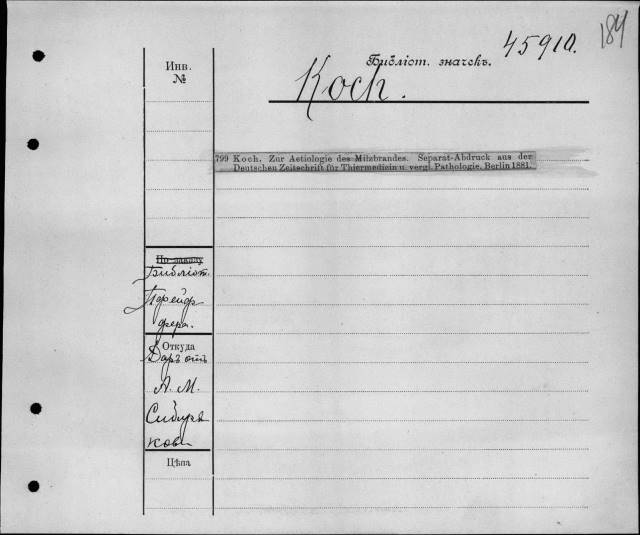 184
45910.
Инв.
№
Библіот. значекъ.
Koch.
799 Koch. Zur Aetiologie des Milzbrandes. Separat-Abdruck aus der
Deutschen Zeitschrift für Thiermedicin u. vergl. Pathologie. Berlin 1881.
По заказу
Библіот.
Пфейф
фера.
Откуда
Даръ отъ
А. М.
Сибиря
кова
Цѣна